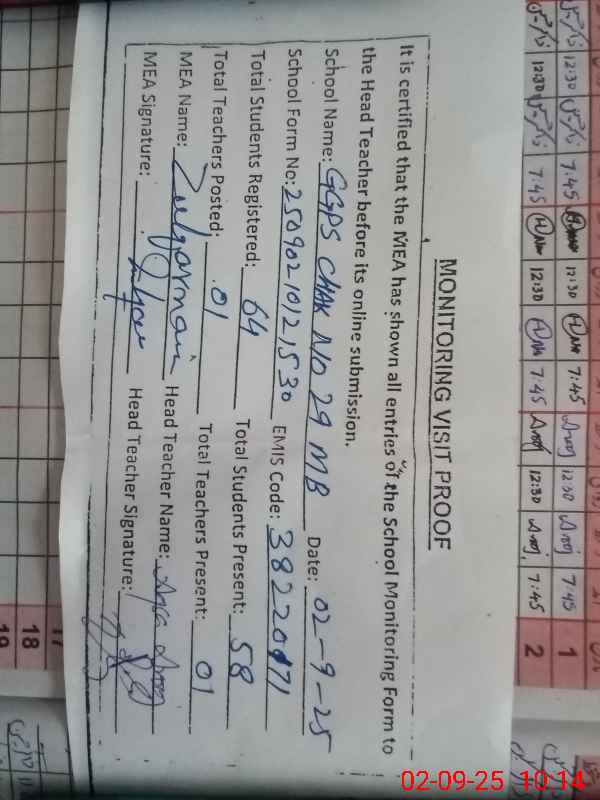 MONITORING VISIT PROOF
It is certified that the MEA has shown all entries of the School Monitoring Form to
the Head Teacher before its online submission.
School Name: GGPS CHAK NO 29 MB Date: 02-9-25
School Form No: 2509021012,530 EMIS Code: 38220171
Total Students Registered: 64 Total Students Present: 58
Total Teachers Posted: 01 Total Teachers Present: 01
MEA Name: Zulqarnain Head Teacher Name:
MEA Signature: Head Teacher Signature:
12:30 7:45 12:30 7:45 12:30 7:45 1
12:30 7:45 12:30 7:45 12:30 7:45 2
17
18
19
02-09-25 10:14